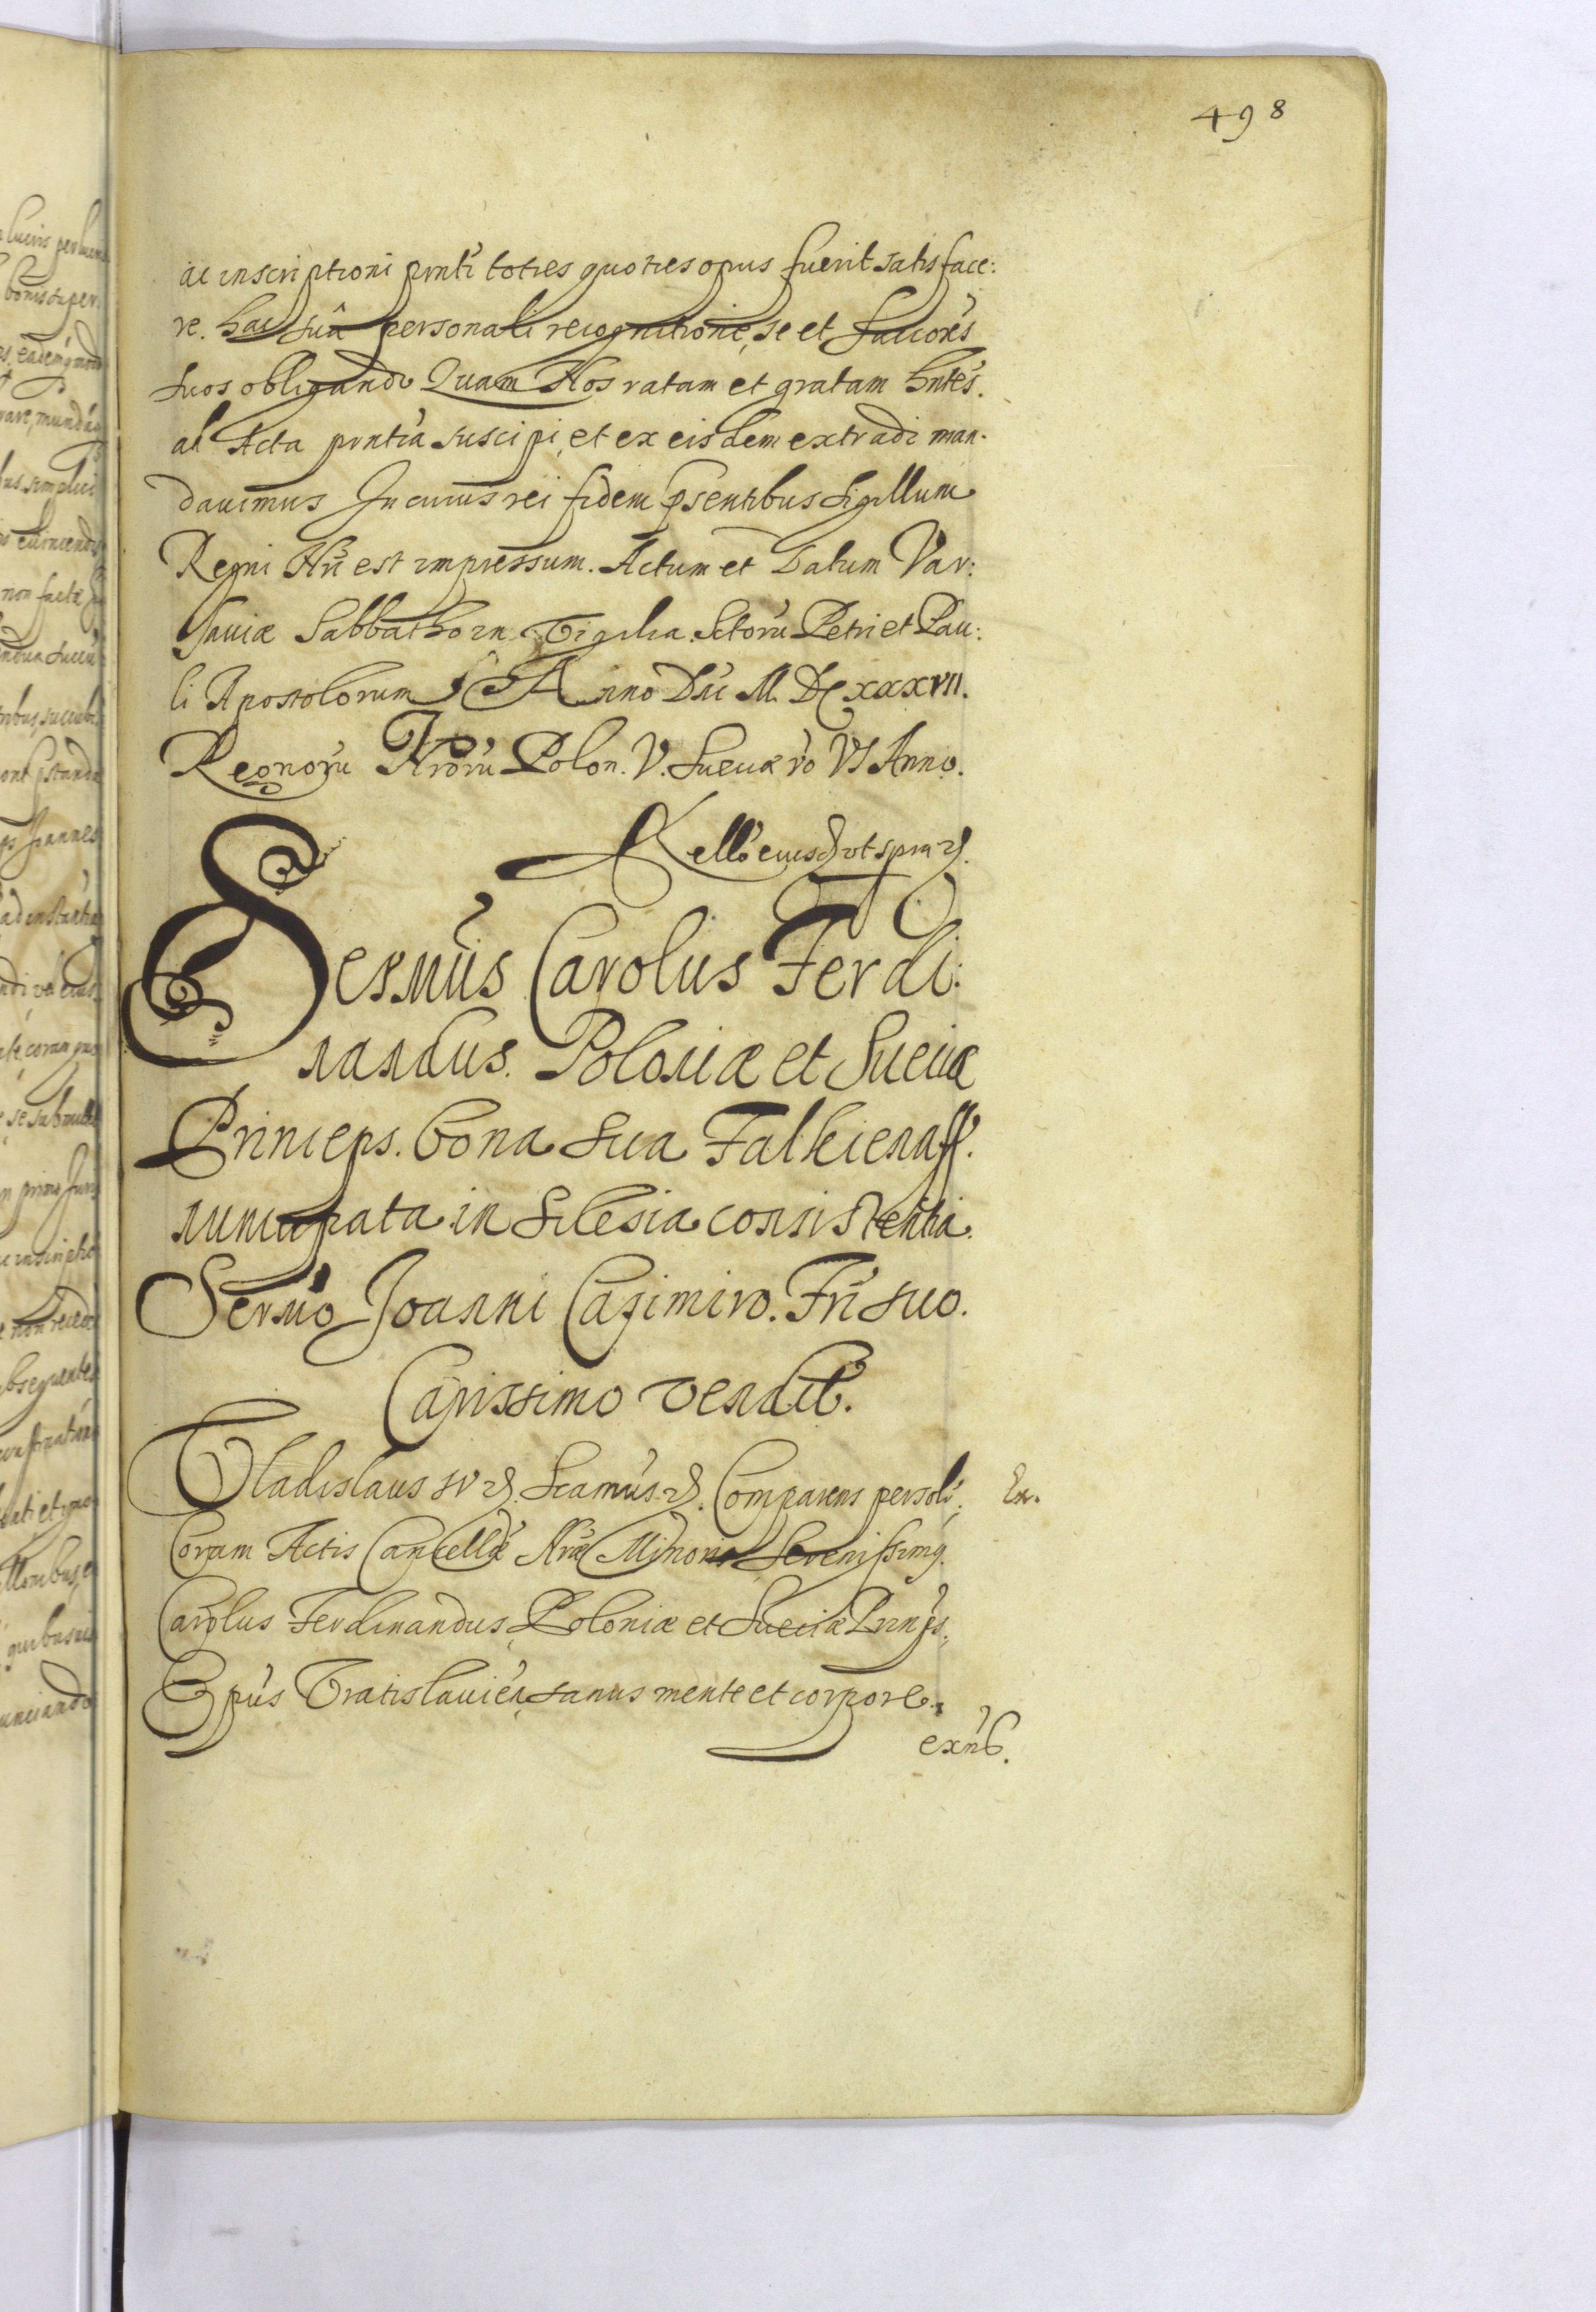 498
ac inscriptioni pnti toties quoties opus fuerit satisface:
re. hac suâ personali recognitione, se et succores
suos obligando Quam Nos ratam et gratam hntes.
ad Acta pntia suscipi, et ex eisdem extradi man-
davimus In cuius rei fidem psentibus Sigillum
Regni Nri est impressum. Actum et Datum Var:
saviæ Sabbatho in Vigilia Sctoru Petri et Pau:
li Apostolorum Anno Dni M. DC XXXVII.
Regnoru Nroru Polon. V. Sueciæ vo VI Anno.
Rello eiusd ut spra
Sermus Carolus Ferdi:
nandus. Poloniæ et Sueciæ
Princeps. bona sua Falkienaff.
nuncupata in Silesia consistentia.
Sermo Joanni Casimiro. Fri suo.
Carissimo vendit.
Vladislaus IV. Scamus. Comparens persolr
Ex.
Coram Actis Cancellæ Nræ Minoris Serenissimq
Carolus Ferdinandus, Poloniæ et Sueciæ Prinps,
Epus Vratislavien, sanus mente et corpore,
exns.